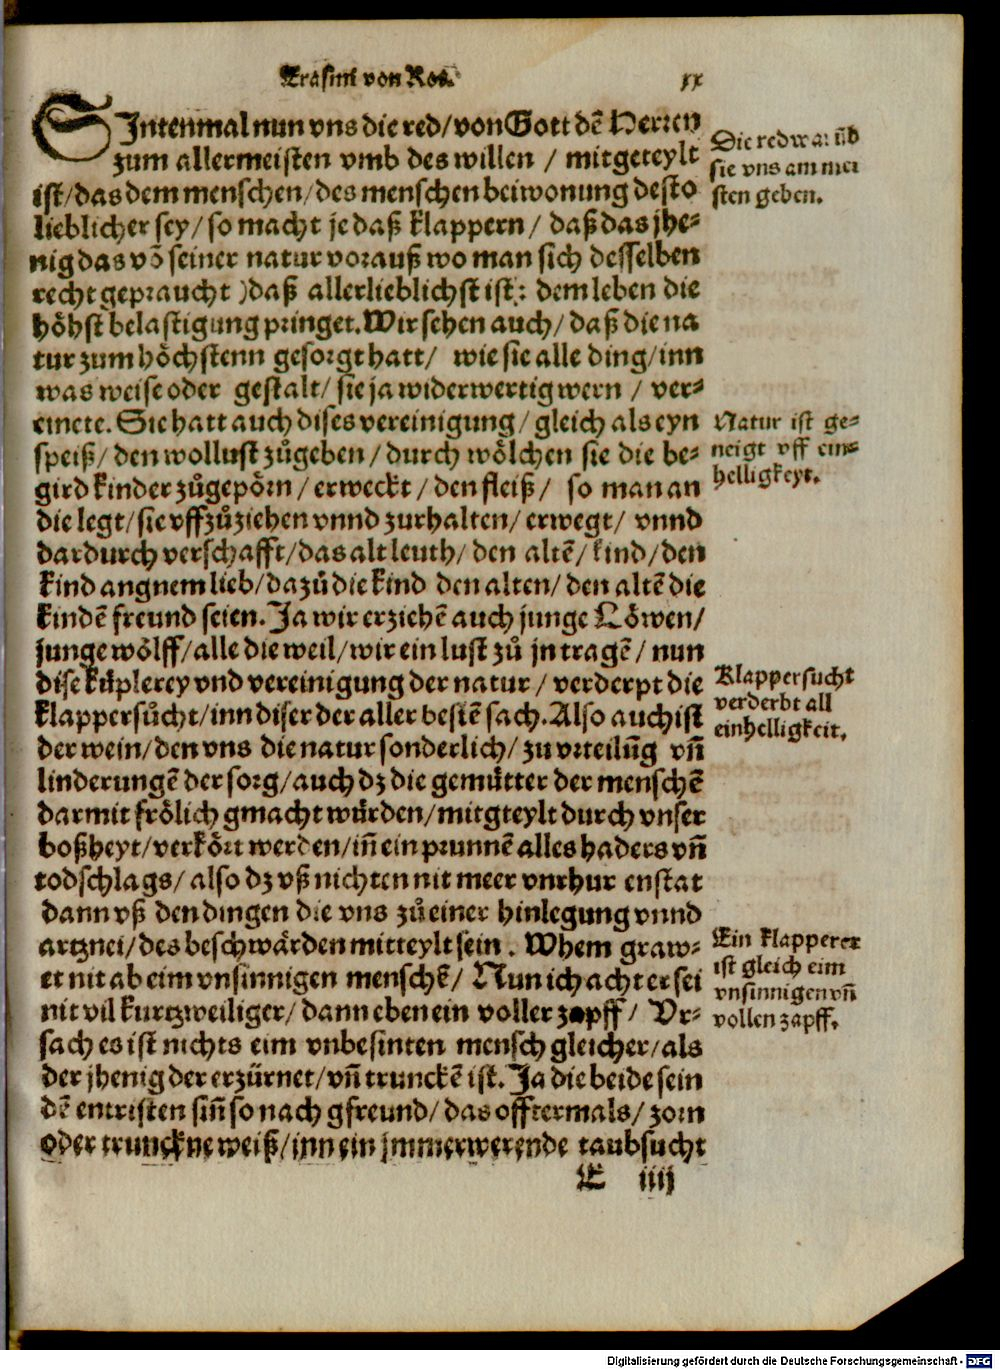 Erasmi von Rot. xx
SIntenmal nun vns die red/von Gott dē Herren
zum allermeisten vmb des willen / mitgeteylt
ist/das dem menschen/des menschen beiwonung desto
lieblicher sey/so macht je daß klappern/ daß das jhe⸗
nig das vō seiner natur vorauß wo man sich desselben
recht gepraucht )daß allerlieblichst ist: dem leben die
höhst belastigung pringet. Wir sehen auch/daß die na
tur zum höchstenn gesorgt hatt/ wie sie alle ding/inn
was weise oder gestalt/sie ja widerwertig wern / ver⸗
einete. Sie hatt auch dises vereinigung/gleich als eyn
speiß/den wollust zůgeben/durch wölchen sie die be⸗
gird kinder zůgepörn/erweckt/den fleiß/ so man an
die legt/sie vffzůziehen vnnd zurhalten/erwegt/ vnnd
dardurch verschafft/das alt leuth/den altē/kind/den
kind angnem lieb/dazů die kind den alten/den altē die
kindē freund seien. Ja wir erziehē auch junge Löwen/
junge wölff/alle die weil/wir ein lust zů jn tragē/nun
dise kůplerey vnd vereinigung der natur/verderpt die
klappersůcht/inn diser der aller bestē sach. Also auch ist
der wein/den vns die natur sonderlich/zu vrteilūg vn̄
linderungē der sorg/auch dz die gemütter der menschē
darmit frölich gmacht würden/mitgteylt durch vnser
boßheyt/verkört werden/in̄ ein prunnē alles haders vn̄
todschlags/also dz vß nichten nit meer vnrhur enstat
dann vß den dingen die vns zů einer hinlegung vnnd
artznei/des beschwärden mitteylt sein. Whem graw⸗
et nit ab eim vnsinnigen menschē/ Nun ich acht er sei
nit vil kurtzweiliger/dann eben ein voller zapff/ Vr⸗
sach es ist nichts eim vnbesinten mensch gleicher/als
der jhenig der erzürnet/vn̄ trunckē ist. Ja die beide sein
dē entristen sin̄ so nach gfreund/das offtermals/zorn
oder trunckne weiß/inn ein jmmerwerende taubsucht
E iiij
Die red war ūb
sie vns am mei
sten geben.
Natur ist ge⸗
neigt vff ein⸗
helligkeyt.
Klappersucht
verderbt all
einhelligkeit.
Ein klapperer
ist gleich eim
vnsinnigen vn̄
vollen zapff.
Digitalisierung gefördert durch die Deutsche Forschungsgemeinschaft - DFG